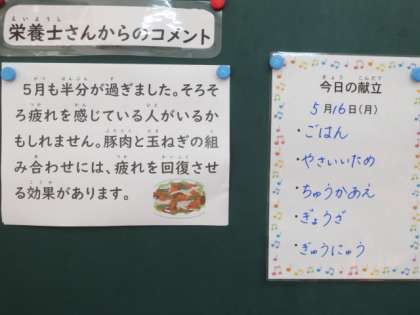 栄養士さんからのコメント
5月も半分が過ぎました。そろそ
ろ疲れを感じている人がいるか
もしれません。豚肉と玉ねぎの組
み合わせには、疲れを回復させ
る効果があります。
今日の献立
5月16日(月)
・ごはん
・やさいいため
・ちゅうかあえ
・ぎょうざ
・ぎゅうにゅう